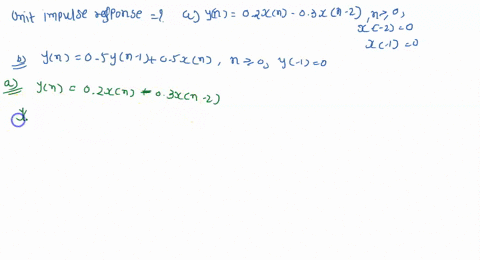 Unit impulse response =? a) y(n) = 0.2x(n) - 0.3x(n-2), n≥0,
x(-2)=0
x(-1)=0
b) y(n) = 0.5y(n-1) + 0.5x(n), n≥0, y(-1)=0
a) y(n) = 0.2x(n) - 0.3x(n-2)